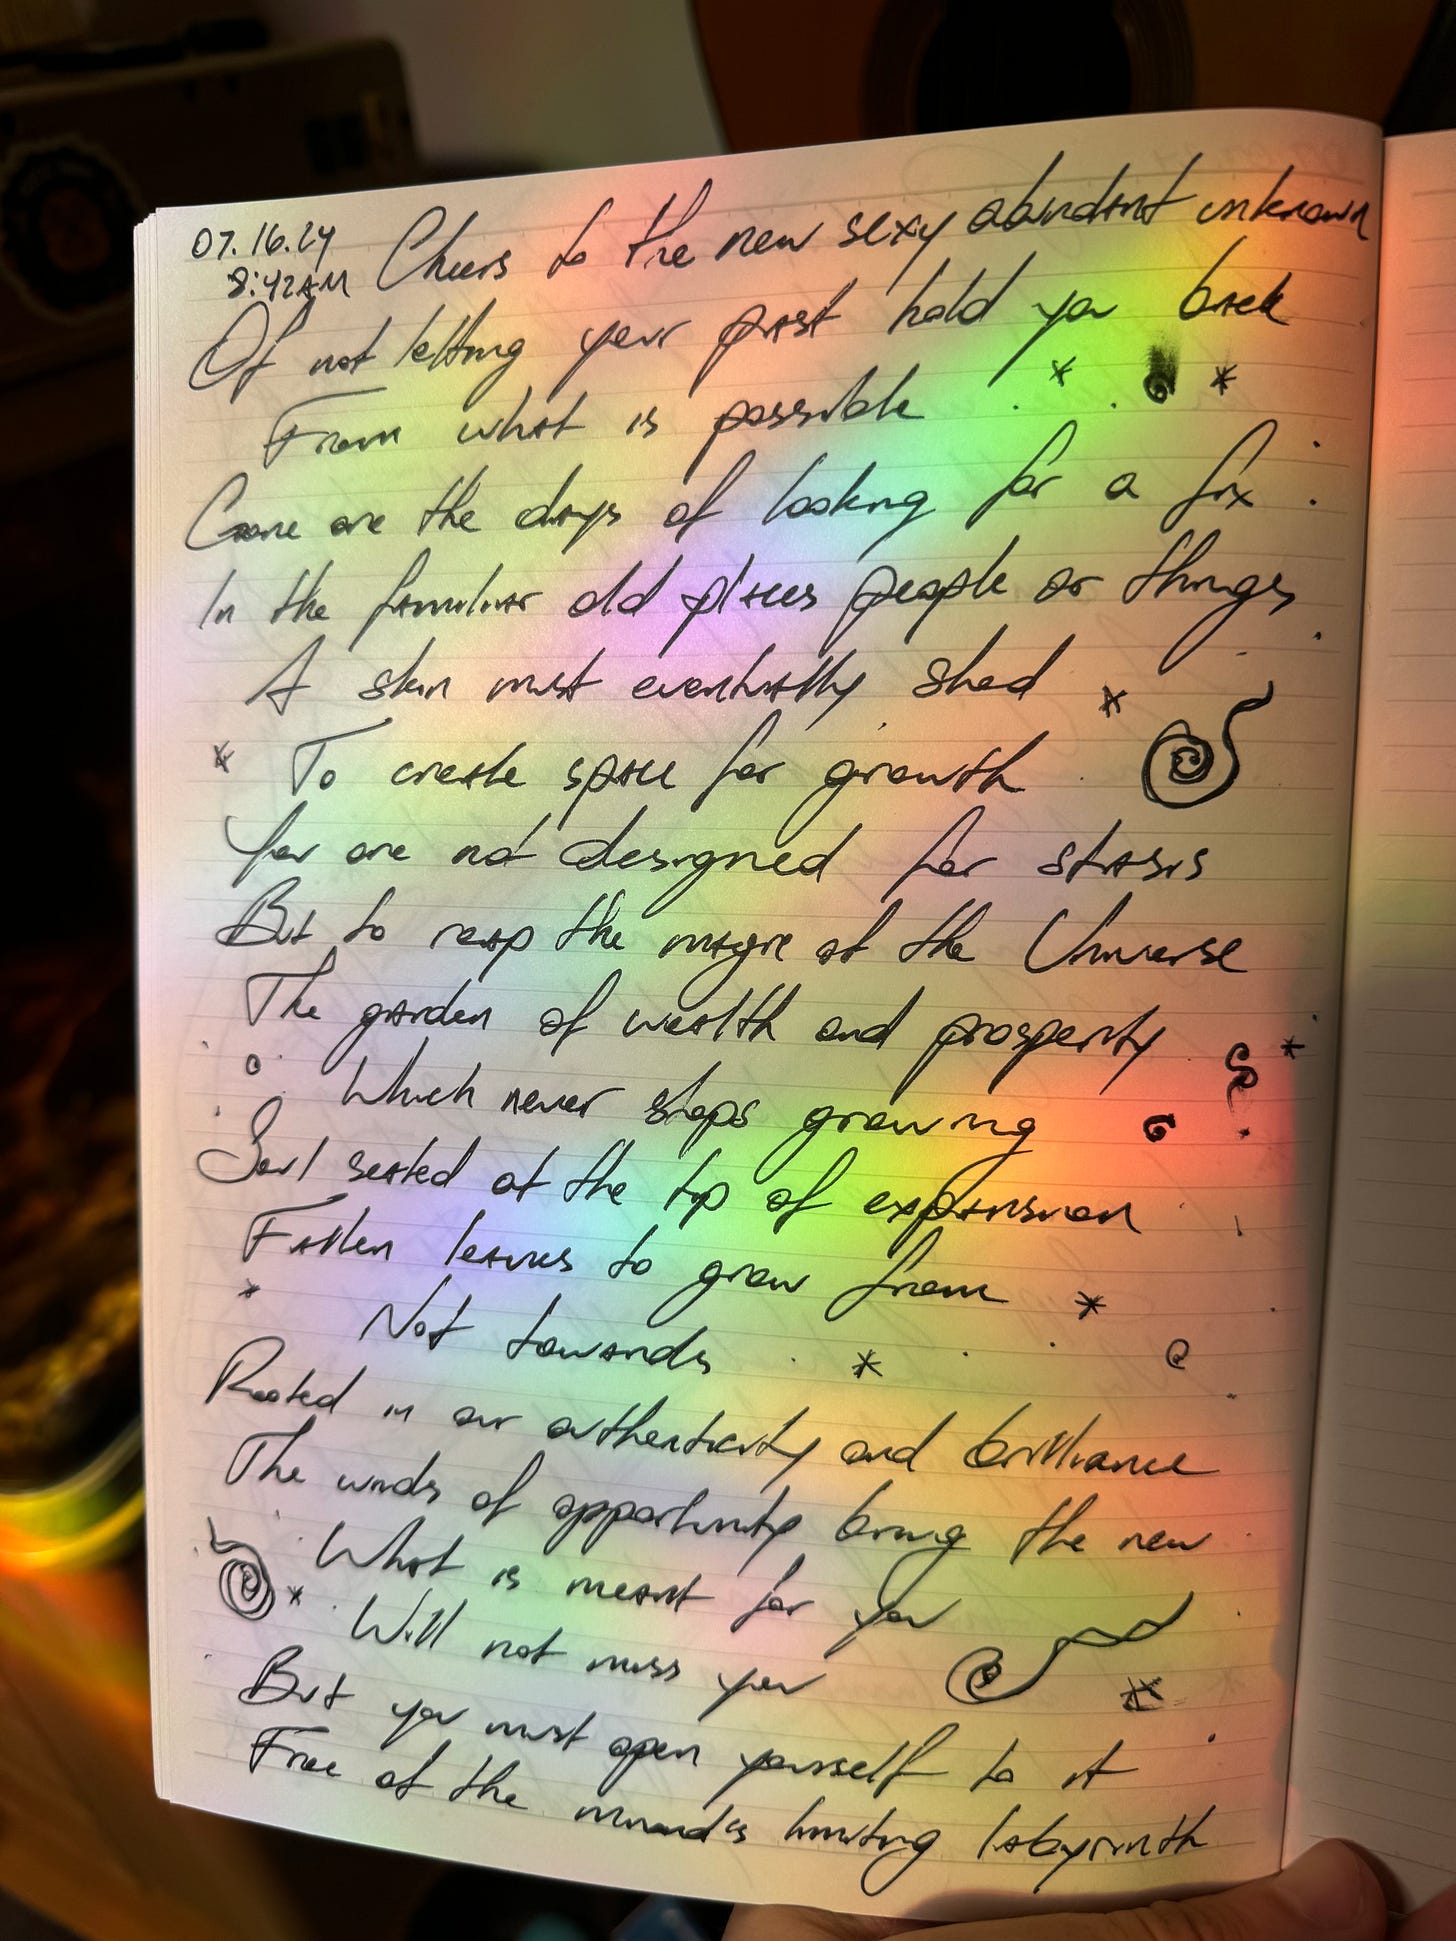 07.16.24
8:42AM
Cheers to the new sexy abundant unknown
Of not letting your past hold you back
From what is possible
Gone are the days of looking for a fix
In the familiar old places people or things
A skin must eventually shed
To create space for growth
You are not designed for stasis
But to reap the magic of the Universe
The garden of wealth and prosperity
Which never stops growing
Soul seated at the tip of expansion
Fallen leaves to grow from
Not towards
Rooted in our authenticity and brilliance
The winds of opportunity bring the new
What is meant for you
Will not miss you
But you must open yourself to it
Free of the minds limiting labyrinth